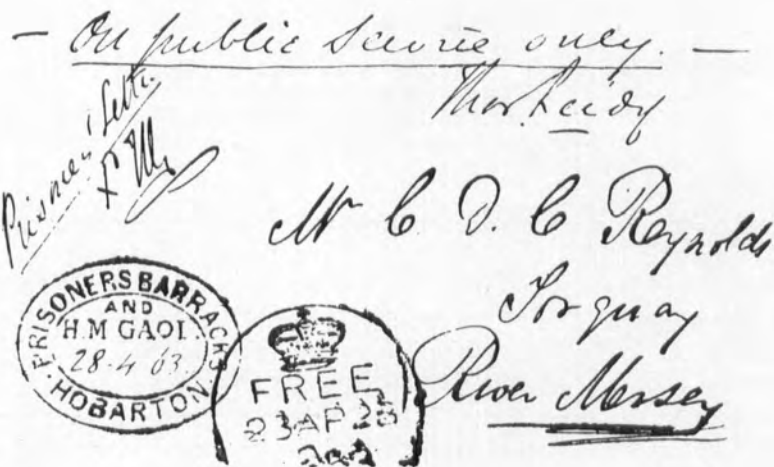 — On public Service only. —
Thos Reidy
Prisoner's Letter
Mr C. D. C Reynolds
Torquay
River Mersey
PRISONERS BARRACKS
AND
H.M GAOL
28-4 63
HOBARTON
FREE
AP